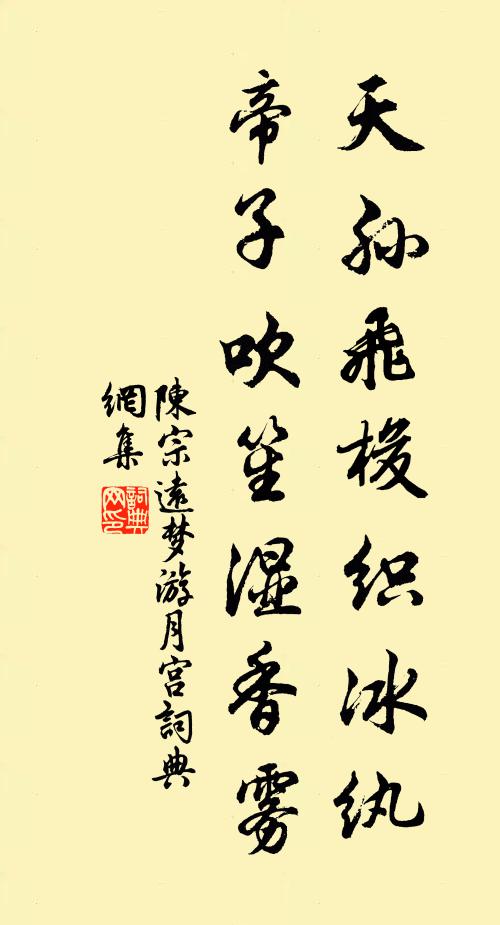 天孙飛梭织冰纨
帝子吹笙湿香雾
陳宗遠梦游月宫詞典
網集
詞典
网印